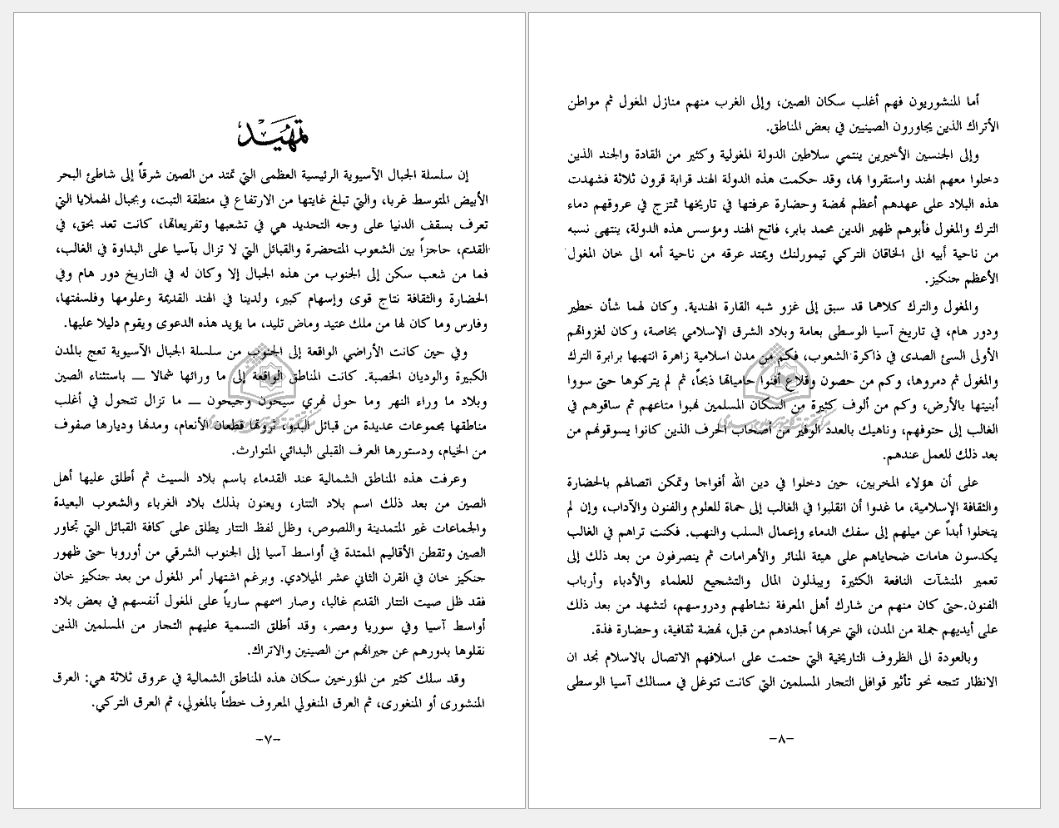 تمهيد
إن سلسلة الجبال الآسيوية الرئيسية العظمى التي تمتد من الصين شرقاً إلى شاطئ البحر
الأبيض المتوسط غربا، والتي تبلغ غايتها من الارتفاع في منطقة التبت، وبجبال الهملايا التي
تعرف بسقف الدنيا على وجه التحديد هي في تشعبها وتفريعاتها، كانت تعد بحق، في
القديم، حاجزاً بين الشعوب المتحضرة والقبائل التي لا تزال بآسيا على البداوة في الغالب،
فما من شعب سكن إلى الجنوب من هذه الجبال إلا وكان له في التاريخ دور هام وفي
الحضارة والثقافة نتاج قوى وإسهام كبير، ولدينا في الهند القديمة وعلومها وفلسفتها،
وفارس وما كان لها من ملك عتيد وماض تليد، ما يؤيد هذه الدعوى ويقوم دليلا عليها.
وفي حين كانت الأراضي الواقعة إلى الجنوب من سلسلة الجبال الآسيوية تعج بالمدن
الكبيرة والوديان الخصبة. كانت المناطق الواقعة إلى ما ورائها شمالا — باستثناء الصين
وبلاد ما وراء النهر وما حول نهري سيحون وجيحون — ما تزال تتحول في أغلب
مناطقها بمجموعات عديدة من قبائل البدو، ثروتها قطعان الأنعام، ومدنها وديارها صفوف
من الخيام، ودستورها العرف القبلى البدائي المتوارث.
وعرفت هذه المناطق الشمالية عند القدماء باسم بلاد السيث ثم أطلق عليها أهل
الصين من بعد ذلك اسم بلاد التتار، ويعنون بذلك بلاد الغرباء والشعوب البعيدة
والجماعات غير المتمدينة واللصوص، وظل لفظ التتار يطلق على كافة القبائل التي تجاور
الصين وتقطن الأقاليم الممتدة في أواسط آسيا إلى الجنوب الشرقي من أوروبا حتى ظهور
جنكيز خان في القرن الثاني عشر الميلادي. وبرغم اشتهار أمر المغول من بعد جنكيز خان
فقد ظل صيت التتار القديم غالبا، وصار اسمهم سارياً على المغول أنفسهم في بعض بلاد
أواسط آسيا وفي سوريا ومصر، وقد أطلق التسمية عليهم التجار من المسلمين الذين
نقلوها بدورهم عن جيرانهم من الصينين والاتراك.
وقد سلك كثير من المؤرخين سكان هذه المناطق الشمالية في عروق ثلاثة هي: العرق
المنشورى أو المنغورى، ثم العرق المنغولي المعروف خطئاً بالمغولي، ثم العرق التركي.
–٧–
أما المنشوريون فهم أغلب سكان الصين، وإلى الغرب منهم منازل المغول ثم مواطن
الأتراك الذين يجاورون الصينيين في بعض المناطق.
وإلى الجنسين الأخيرين ينتمي سلاطين الدولة المغولية وكثير من القادة والجند الذين
دخلوا معهم الهند واستقروا بها، وقد حكمت هذه الدولة الهند قرابة قرون ثلاثة فشهدت
هذه البلاد على عهدهم أعظم نهضة وحضارة عرفتها في تاريخها تمتزج في عروقهم دماء
الترك والمغول فأبوهم ظهير الدين محمد بابر، فاتح الهند ومؤسس هذه الدولة، ينتهى نسبه
من ناحية أبيه الى الخاقان التركي تيمورلنك ويمتد عرقه من ناحية أمه الى خان المغول
الأعظم جنكيز.
والمغول والترك كلاهما قد سبق إلى غزو شبه القارة الهندية. وكان لهما شأن خطير
ودور هام، في تاريخ آسيا الوسطى بعامة وبلاد الشرق الإسلامي بخاصة، وكان لغزواتهم
الأولى السئ الصدى في ذاكرة الشعوب، فكم من مدن اسلامية زاهرة انتهبها برابرة الترك
والمغول ثم دمروها، وكم من حصون وقلاع أفنوا حامياتها ذبحاً، ثم لم يتركوها حتى سووا
أبنيتها بالأرض، وكم من ألوف كثيرة من السكان المسلمين نهبوا متاعهم ثم ساقوهم في
الغالب إلى حتوفهم، وناهيك بالعدد الوفير من أصحاب الحرف الذين كانوا يسوقونهم من
بعد ذلك للعمل عندهم.
على أن هؤلاء المخربين، حين دخلوا في دين الله أفواجا وتمكن اتصالهم بالحضارة
والثقافة الإسلامية، ما غدوا أن انقلبوا في الغالب إلى حماة للعلوم والفنون والآداب، وإن لم
يتخلوا أبداً عن ميلهم إلى سفك الدماء وإعمال السلب والنهب. فكنت تراهم في الغالب
يكدسون هامات ضحاياهم على هيئة المنائر والأهرامات ثم ينصرفون من بعد ذلك إلى
تعمير المنشآت النافعة الكثيرة ويبذلون المال والتشجيع للعلماء والأدباء وأرباب
الفنون.حتى كان منهم من شارك أهل المعرفة نشاطهم ودروسهم، لتشهد من بعد ذلك
على أيديهم جملة من المدن، التي خربها أجدادهم من قبل، نهضة ثقافية، وحضارة فذة.
وبالعودة الى الظروف التاريخية التي حتمت على اسلافهم الاتصال بالاسلام نجد ان
الانظار تتجه نحو تأثير قوافل التجار المسلمين التي كانت تتوغل في مسالك آسيا الوسطى
–٨–